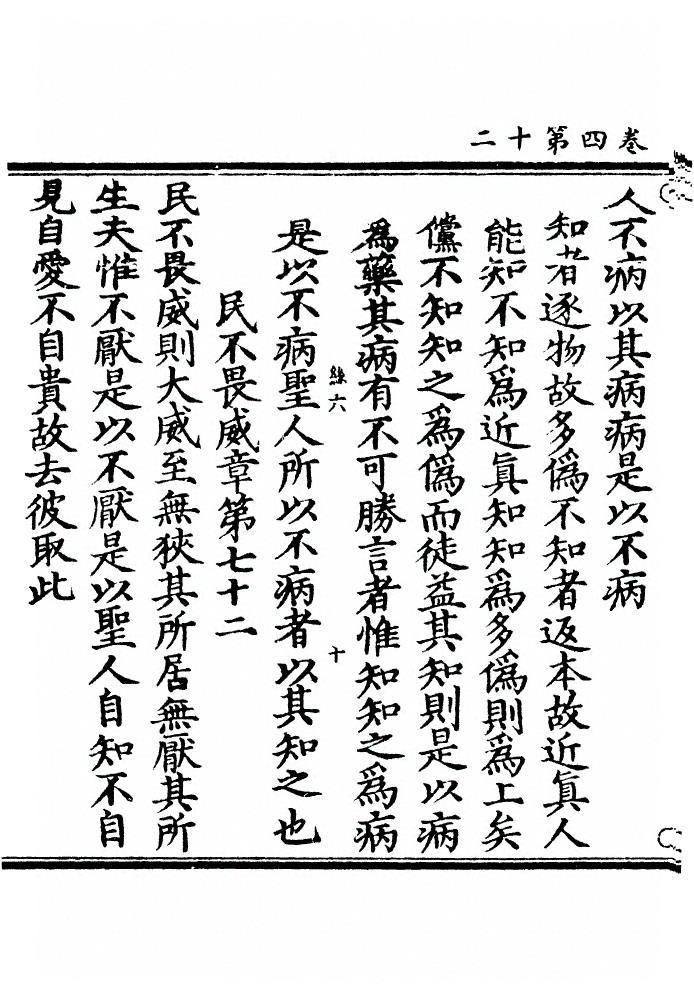 卷四第十二
人不病以其病病是以不病
知者逐物故多僞不知者返本故近眞人
能知不知爲近眞知知爲多僞則爲上矣
儻不知知之爲僞而徒益其知則是以病
爲藥其病有不可勝言者惟知知之爲病
絲六
十
是以不病聖人所以不病者以其知之也
民不畏威章第七十二
民不畏威則大威至無狹其所居無厭其所
生夫惟不厭是以不厭是以聖人自知不自
見自愛不自貴故去彼取此